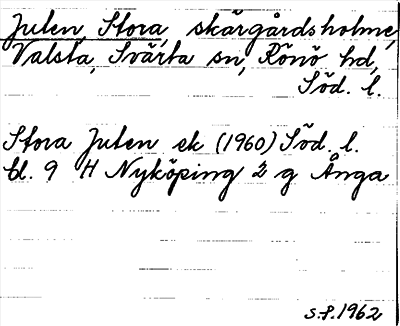 Julen, Stora, skärgårdsholme,
Valsta, Svärta sn, Rönö hd,
Söd. l.
Stora Julen ek (1960) Söd. l.
bl. 9 H Nyköping 2 g Ånga
S.P. 1962